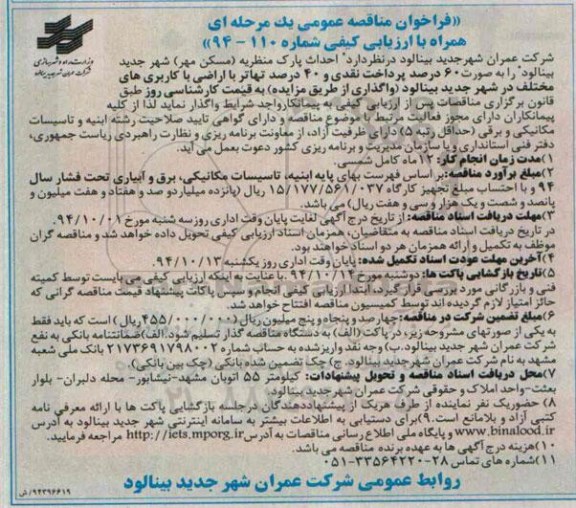 «فراخوان مناقصه عمومی یك مرحله ای
همراه با ارزیابی کیفی شماره ۱۱۰ - ۹۴»
وزارت راه و شهرسازی
شرکت عمران شهر جدید بینالود
شرکت عمران شهرجدید بینالود درنظردارد" احداث پارک منظریه (مسکن مهر) شهر جدید
بینالود" را به صورت ۶۰ درصد پرداخت نقدی و ۴۰ درصد تهاتر با اراضی با کاربری های
مختلف در شهر جدید بینالود (واگذاری از طریق مزایده) به قیمت کارشناسی روز طبق
قانون برگزاری مناقصات پس از ارزیابی کیفی به پیمانکارواجد شرایط واگذار نماید لذا از کلیه
پیمانکاران دارای مجوز فعالیت مرتبط با موضوع مناقصه و دارای گواهی تایید صلاحیت رشته ابنیه و تاسیسات
مکانیکی و برقی (حداقل رتبه ۵) دارای ظرفیت آزاد، از معاونت برنامه ریزی و نظارت راهبردی ریاست جمهوری،
دفتر فنی استانداری و یا سازمان مدیریت و برنامه ریزی کشور دعوت بعمل می آید.
۱)مدت زمان انجام کار: ۱۲ماه کامل شمسی.
۲)مبلغ برآورد مناقصه: بر اساس فهرست بهای پایه ابنیه، تاسیسات مکانیکی، برق و آبیاری تحت فشار سال
۹۴ و با احتساب مبلغ تجهیز کارگاه ۱۵/۱۷۷/۵۶۱/۰۳۷ ریال (پانزده میلیارد و صد و هفتاد و هفت میلیون و
پانصد و شصت و یک هزار و سی و هفت ریال) می باشد.
۳)مهلت دریافت اسناد مناقصه: از تاریخ درج آگهی لغایت پایان وقت اداری روز سه شنبه مورخ ۹۴/۱۰/۰۱.
در تاریخ دریافت اسناد مناقصه به متقاضیان، همزمان اسناد ارزیابی کیفی تحویل داده خواهد شد و مناقصه گران
موظف به تکمیل و ارائه همزمان هر دو اسناد خواهند بود.
۴)آخرین مهلت عودت اسناد تکمیل شده: پایان وقت اداری روز یکشنبه ۹۴/۱۰/۱۳.
۵)تاریخ بازگشایی پاکت ها: دوشنبه مورخ ۹۴/۱۰/۱۴. با عنایت به اینکه ارزیابی کیفی می بایست توسط کمیته
فنی و بازرگانی مورد بررسی قرار گیرد، ابتدا ارزیابی کیفی انجام و سپس پاکات پیشنهاد قیمت مناقصه گرانی که
حائز امتیاز لازم گردیده اند توسط کمیسیون مناقصه افتتاح خواهد شد.
۶)مبلغ تضمین شرکت در مناقصه: چهارصد و پنجاه و پنج میلیون ریال (۴۵۵/۰۰۰/۰۰۰ریال) است که باید فقط
به یکی از صورتهای مشروحه زیر، در پاکت (الف) به دستگاه مناقصه گذار تسلیم شود. الف)ضمانتنامه بانکی به نفع
شرکت عمران شهر جدید بینالود. ب)وجه نقد واریز شده به حساب شماره ۲۱۷۳۶۹۱۷۹۸۰۰۲ بانک ملی شعبه
مشهد به نام شرکت عمران شهر جدید بینالود. ج)چک تضمین شده بانکی (چک بین بانکی).
۷)محل دریافت اسناد مناقصه و تحویل پیشنهادات: کیلومتر ۵۵ اتوبان مشهد-نیشابور- محله دلبران- بلوار
بعثت-واحد املاک و حقوقی شرکت عمران شهر جدید بینالود.
۸) حضور یک نفر نماینده از طرف هریک از پیشنهاددهندگان درجلسه بازگشایی پاکت ها با ارائه معرفی نامه
کتبی آزاد و بلامانع است. ۹)برای دستیابی به اطلاعات بیشتر به سامانه اینترنتی شهر جدید بینالود به آدرس
www.binalood.ir و پایگاه ملی اطلاع رسانی مناقصات به آدرس http://iets.mporg.ir مراجعه فرمایید.
۱۰)هزینه درج آگهی ها به عهده برنده مناقصه می باشد.
۱۱)شماره های تماس ۲۸-۳۳۵۶۴۲۲۰-۰۵۱
روابط عمومی شرکت عمران شهر جدید بینالود
۹۴۳۹۶۶۱۹/ش